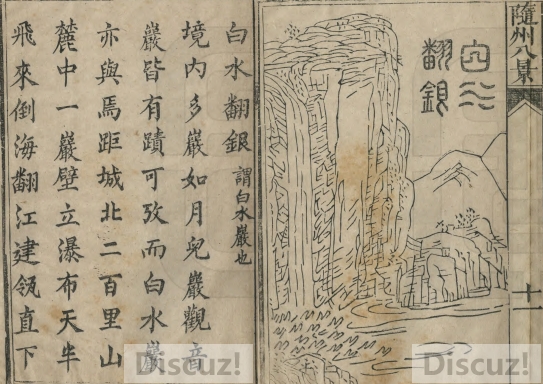 隨州八景
十一
白水
翻銀
白水翻銀 謂白水巖也
境內多巖如月兒巖觀音
巖皆有蹟可攷而白水巖
亦與焉距城北二百里山
麓中一巖壁立瀑布天半
飛來倒海翻江建瓴直下
Discuz!
Discuz!